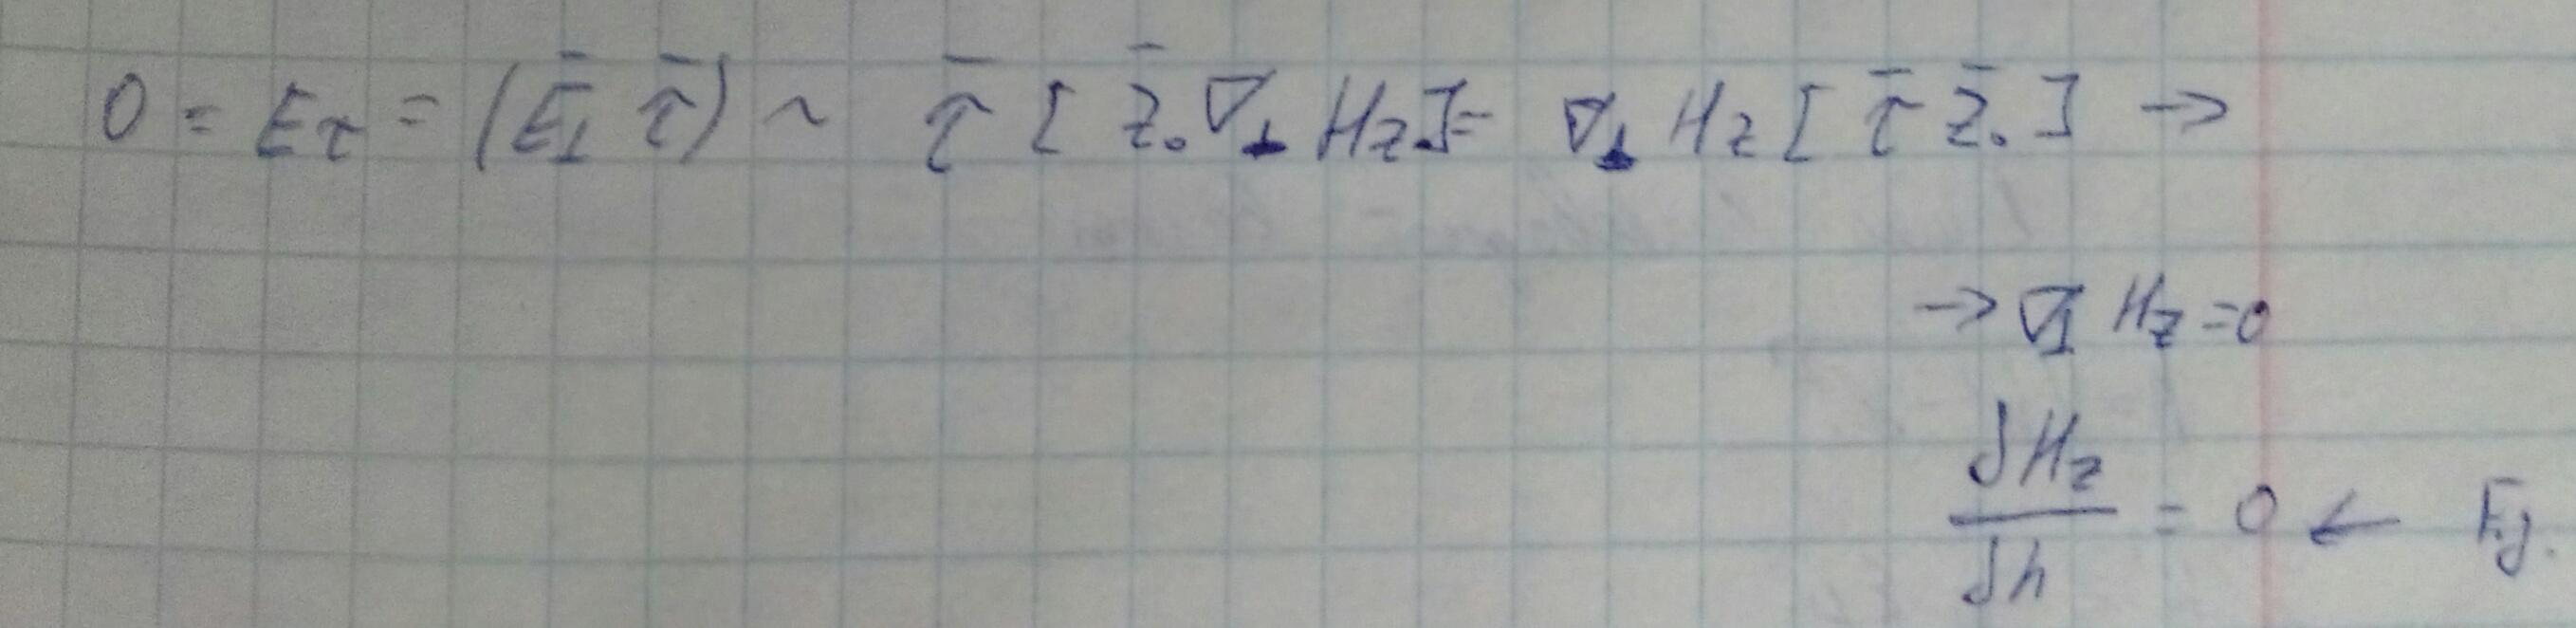 0 = E_τ = (Ē_⊥ τ̄) ~ τ̄ [ z̄₀ ∇_⊥ H_z ] = ∇_⊥ H_z [ τ̄ z̄₀ ] →
→ ∇_⊥ H_z = 0
∂H_z / ∂n = 0 ←